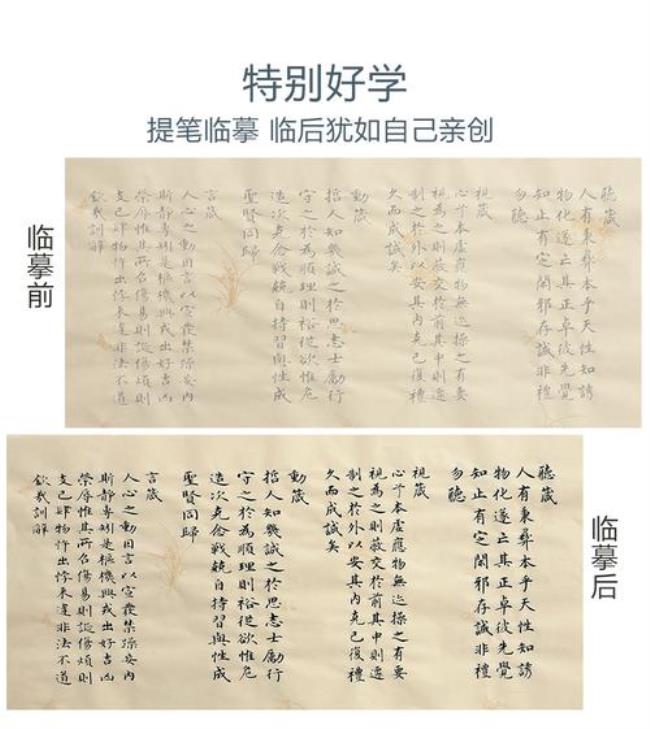 特别好学
提笔临摹 临后犹如自己亲创
临摹前
聽箴
人有秉彝本乎天性知誘
物化遂亡其正卓彼先覺
知止有定閑邪存誠非禮
勿聽
視箴
心兮本虛應物無迹操之有要
視為之則蔽交於前其中則遷
制之於外以安其內克己復禮
久而成誠矣
動箴
哲人知幾誠之於思志士勵行
守之於為順理則裕從欲惟危
造次克念戰兢自持習與性成
聖賢同歸
言箴
人心之動因言以宣發禁躁妄內
斯靜專矧是樞機興戎出好吉凶
榮辱惟其所召傷易則誕傷煩則
支己肆物忤出悖來違非法不道
欽哉訓辭
临摹后
聽箴
人有秉彝本乎天性知誘
物化遂亡其正卓彼先覺
知止有定閑邪存誠非禮
勿聽
視箴
心兮本虛應物無迹操之有要
視為之則蔽交於前其中則遷
制之於外以安其內克己復禮
久而成誠矣
動箴
哲人知幾誠之於思志士勵行
守之於為順理則裕從欲惟危
造次克念戰兢自持習與性成
聖賢同歸
言箴
人心之動因言以宣發禁躁妄內
斯靜專矧是樞機興戎出好吉凶
榮辱惟其所召傷易則誕傷煩則
支己肆物忤出悖來違非法不道
欽哉訓辭